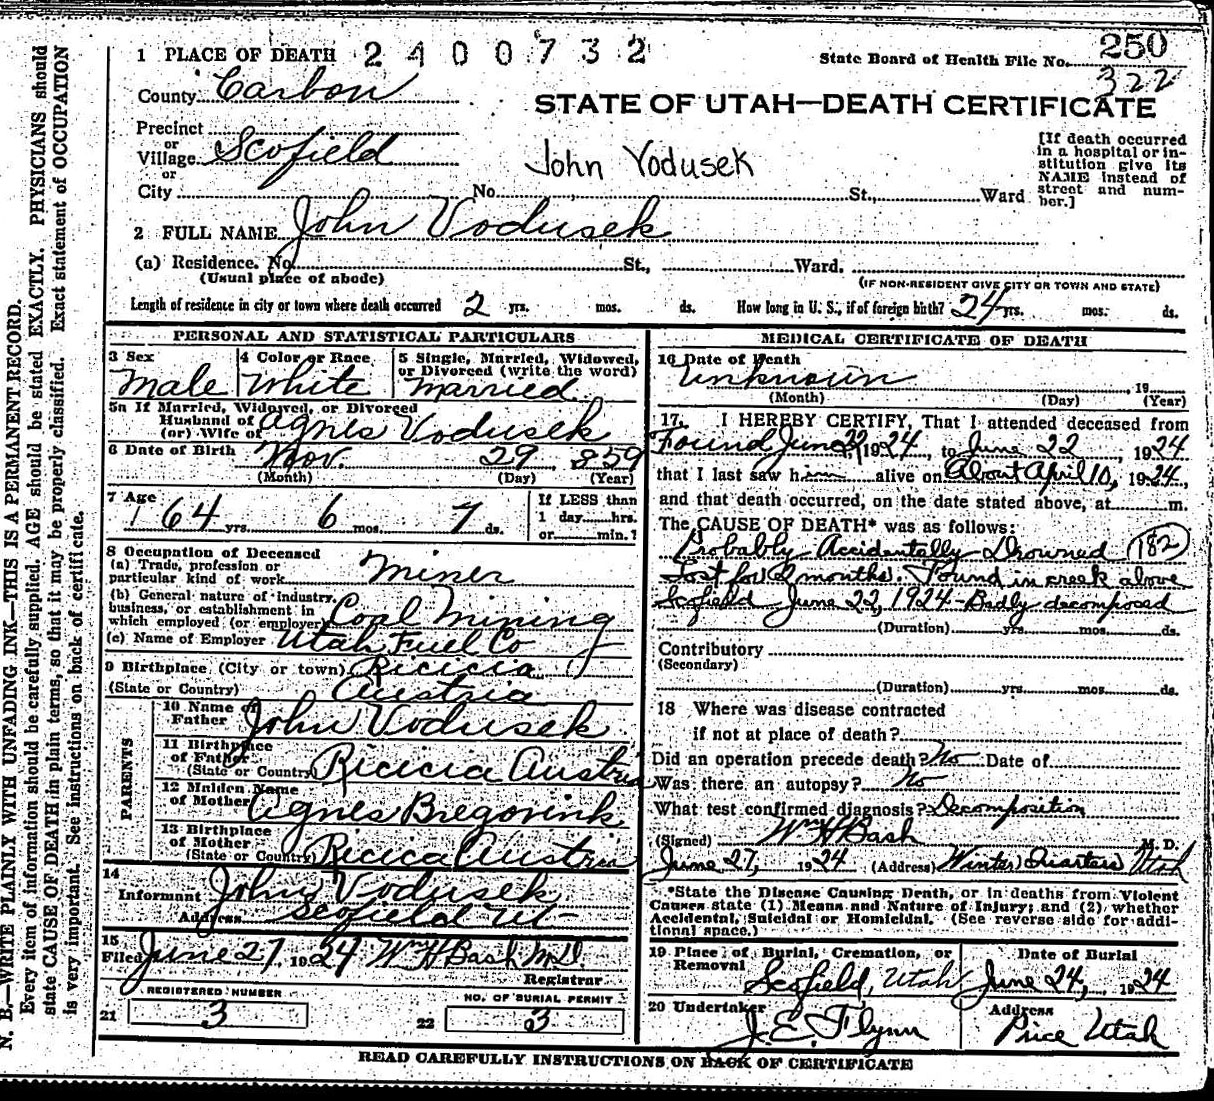 N. B.—WRITE PLAINLY WITH UNFADING INK—THIS IS A PERMANENT RECORD.
Every item of information should be carefully supplied. AGE should be stated EXACTLY. PHYSICIANS should
state CAUSE OF DEATH in plain terms, so that it may be properly classified. Exact statement of OCCUPATION
is very important. See instructions on back of certificate.
1 PLACE OF DEATH 2400732
State Board of Health File No. 250
322
County Carbon
STATE OF UTAH—DEATH CERTIFICATE
Precinct
or
Village Scofield
or
John Vodusek
[If death occurred
in a hospital or in-
stitution give its
NAME instead of
street and num-
ber.]
City No. St., Ward
2 FULL NAME John Vodusek
(a) Residence. No. St., Ward.
(Usual place of abode) (IF NON-RESIDENT GIVE CITY OR TOWN AND STATE)
Length of residence in city or town where death occurred 2 yrs. mos. ds. How long in U. S., if of foreign birth? 24 yrs. mos. ds.
PERSONAL AND STATISTICAL PARTICULARS
3 Sex 4 Color or Race 5 Single, Married, Widowed,
or Divorced (write the word)
Male White Married
5a If Married, Widowed, or Divorced
Husband of
(or) Wife of Agnes Vodusek
6 Date of Birth Nov. 29 859
(Month) (Day) (Year)
7 Age If LESS than
64 yrs. 6 mos. 7 ds. 1 day hrs.
or min.?
8 Occupation of Deceased
(a) Trade, profession or
particular kind of work Miner
(b) General nature of industry,
business, or establishment in
which employed (or employer) Coal Mining
(c) Name of Employer Utah Fuel Co
9 Birthplace (City or town) Ricicia
(State or Country) Austria
PARENTS
10 Name of
Father John Vodusek
11 Birthplace
of Father
(State or Country) Ricicia Austria
12 Maiden Name
of Mother Agnes Bregorink
13 Birthplace
of Mother
(State or Country) Ricica Austria
14
Informant John Vodusek
Address Scofield Ut
15
Filed June 27, 1924 Wm H Bash M.D.
Registrar
REGISTERED NUMBER NO. OF BURIAL PERMIT
21 3 22 3
MEDICAL CERTIFICATE OF DEATH
16 Date of Death
Unknown 19
(Month) (Day) (Year)
17. I HEREBY CERTIFY, That I attended deceased from
Found June 22, 1924, to June 22 1924
that I last saw him alive on About April 10, 1924,
and that death occurred, on the date stated above, at m.
The CAUSE OF DEATH* was as follows:
Probably Accidentally Drowned (182)
Lost for 2 months. Found in creek above
Scofield June 22, 1924 - Badly decomposed
(Duration) yrs. mos. ds.
Contributory
(Secondary)
(Duration) yrs. mos. ds.
18 Where was disease contracted
if not at place of death?
Did an operation precede death? No Date of
Was there an autopsy? No
What test confirmed diagnosis? Decomposition
(Signed) Wm H Bash M. D.
June 27, 1924 (Address) Winter Quarters Utah
*State the Disease Causing Death, or in deaths from Violent
Causes state (1) Means and Nature of Injury; and (2) whether
Accidental, Suicidal or Homicidal. (See reverse side for addi-
tional space.)
19 Place of Burial, Cremation, or
Removal Date of Burial
Scofield, Utah June 24, 1924
20 Undertaker Address
J. E. Flynn Price Utah
READ CAREFULLY INSTRUCTIONS ON BACK OF CERTIFICATE